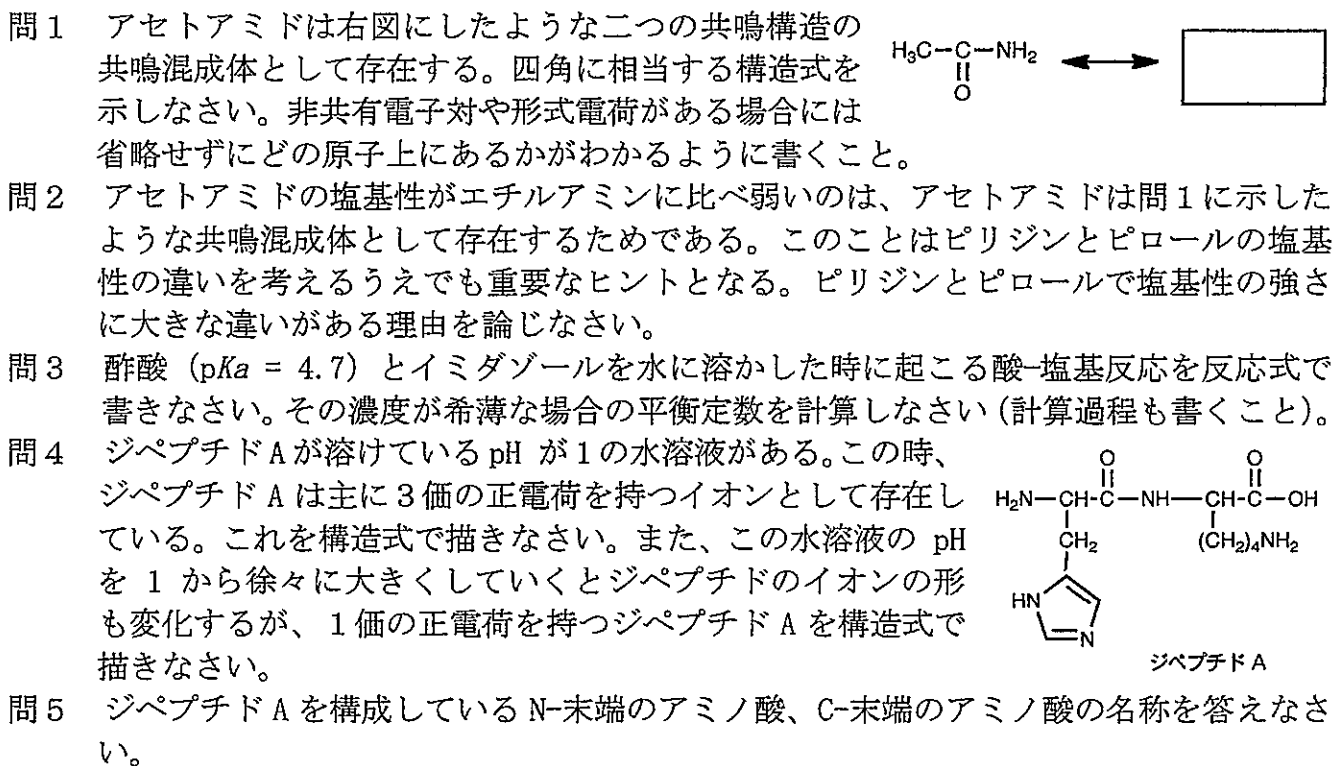 問1 アセトアミドは右図にしたような二つの共鳴構造の
共鳴混成体として存在する。四角に相当する構造式を
示しなさい。非共有電子対や形式電荷がある場合には
省略せずにどの原子上にあるかがわかるように書くこと。
H₃C-C-NH₂
O
問2 アセトアミドの塩基性がエチルアミンに比べ弱いのは、アセトアミドは問1に示した
ような共鳴混成体として存在するためである。このことはピリジンとピロールの塩基
性の違いを考えるうえでも重要なヒントとなる。ピリジンとピロールで塩基性の強さ
に大きな違いがある理由を論じなさい。
問3 酢酸 (pKa = 4.7) とイミダゾールを水に溶かした時に起こる酸-塩基反応を反応式で
書きなさい。その濃度が希薄な場合の平衡定数を計算しなさい(計算過程も書くこと)。
問4 ジペプチドAが溶けているpH が1の水溶液がある。この時、
ジペプチド A は主に3価の正電荷を持つイオンとして存在し
ている。これを構造式で描きなさい。また、この水溶液の pH
を 1 から徐々に大きくしていくとジペプチドのイオンの形
も変化するが、1価の正電荷を持つジペプチド A を構造式で
描きなさい。
O O
H₂N-CH-C-NH-CH-C-OH
CH₂ (CH₂)₄NH₂
HN
N
ジペプチド A
問5 ジペプチド A を構成している N-末端のアミノ酸、C-末端のアミノ酸の名称を答えなさ
い。